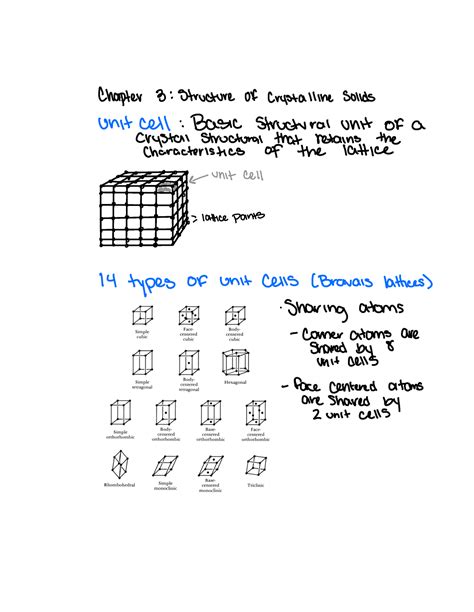 Chapter 3: Structure of Crystalline Solids
unit cell : Basic Structural unit of a
Crystal Structural that retains the
Characteristics of the lattice
unit cell
lattice points
14 types of unit cells (Bravais lattices)
Simple
cubic
Face-
centered
cubic
Body-
centered
cubic
· Sharing atoms
- Corner atoms are
Shared by 8
unit cells
Simple
tetragonal
Body-
centered
tetragonal
Hexagonal
- Face centered atoms
are shared by
2 unit cells
Simple
orthorhombic
Body-
centered
orthorhombic
Base-
centered
orthorhombic
Face-
centered
orthorhombic
Rhombohedral
Simple
monoclinic
Base-
centered
monoclinic
Triclinic